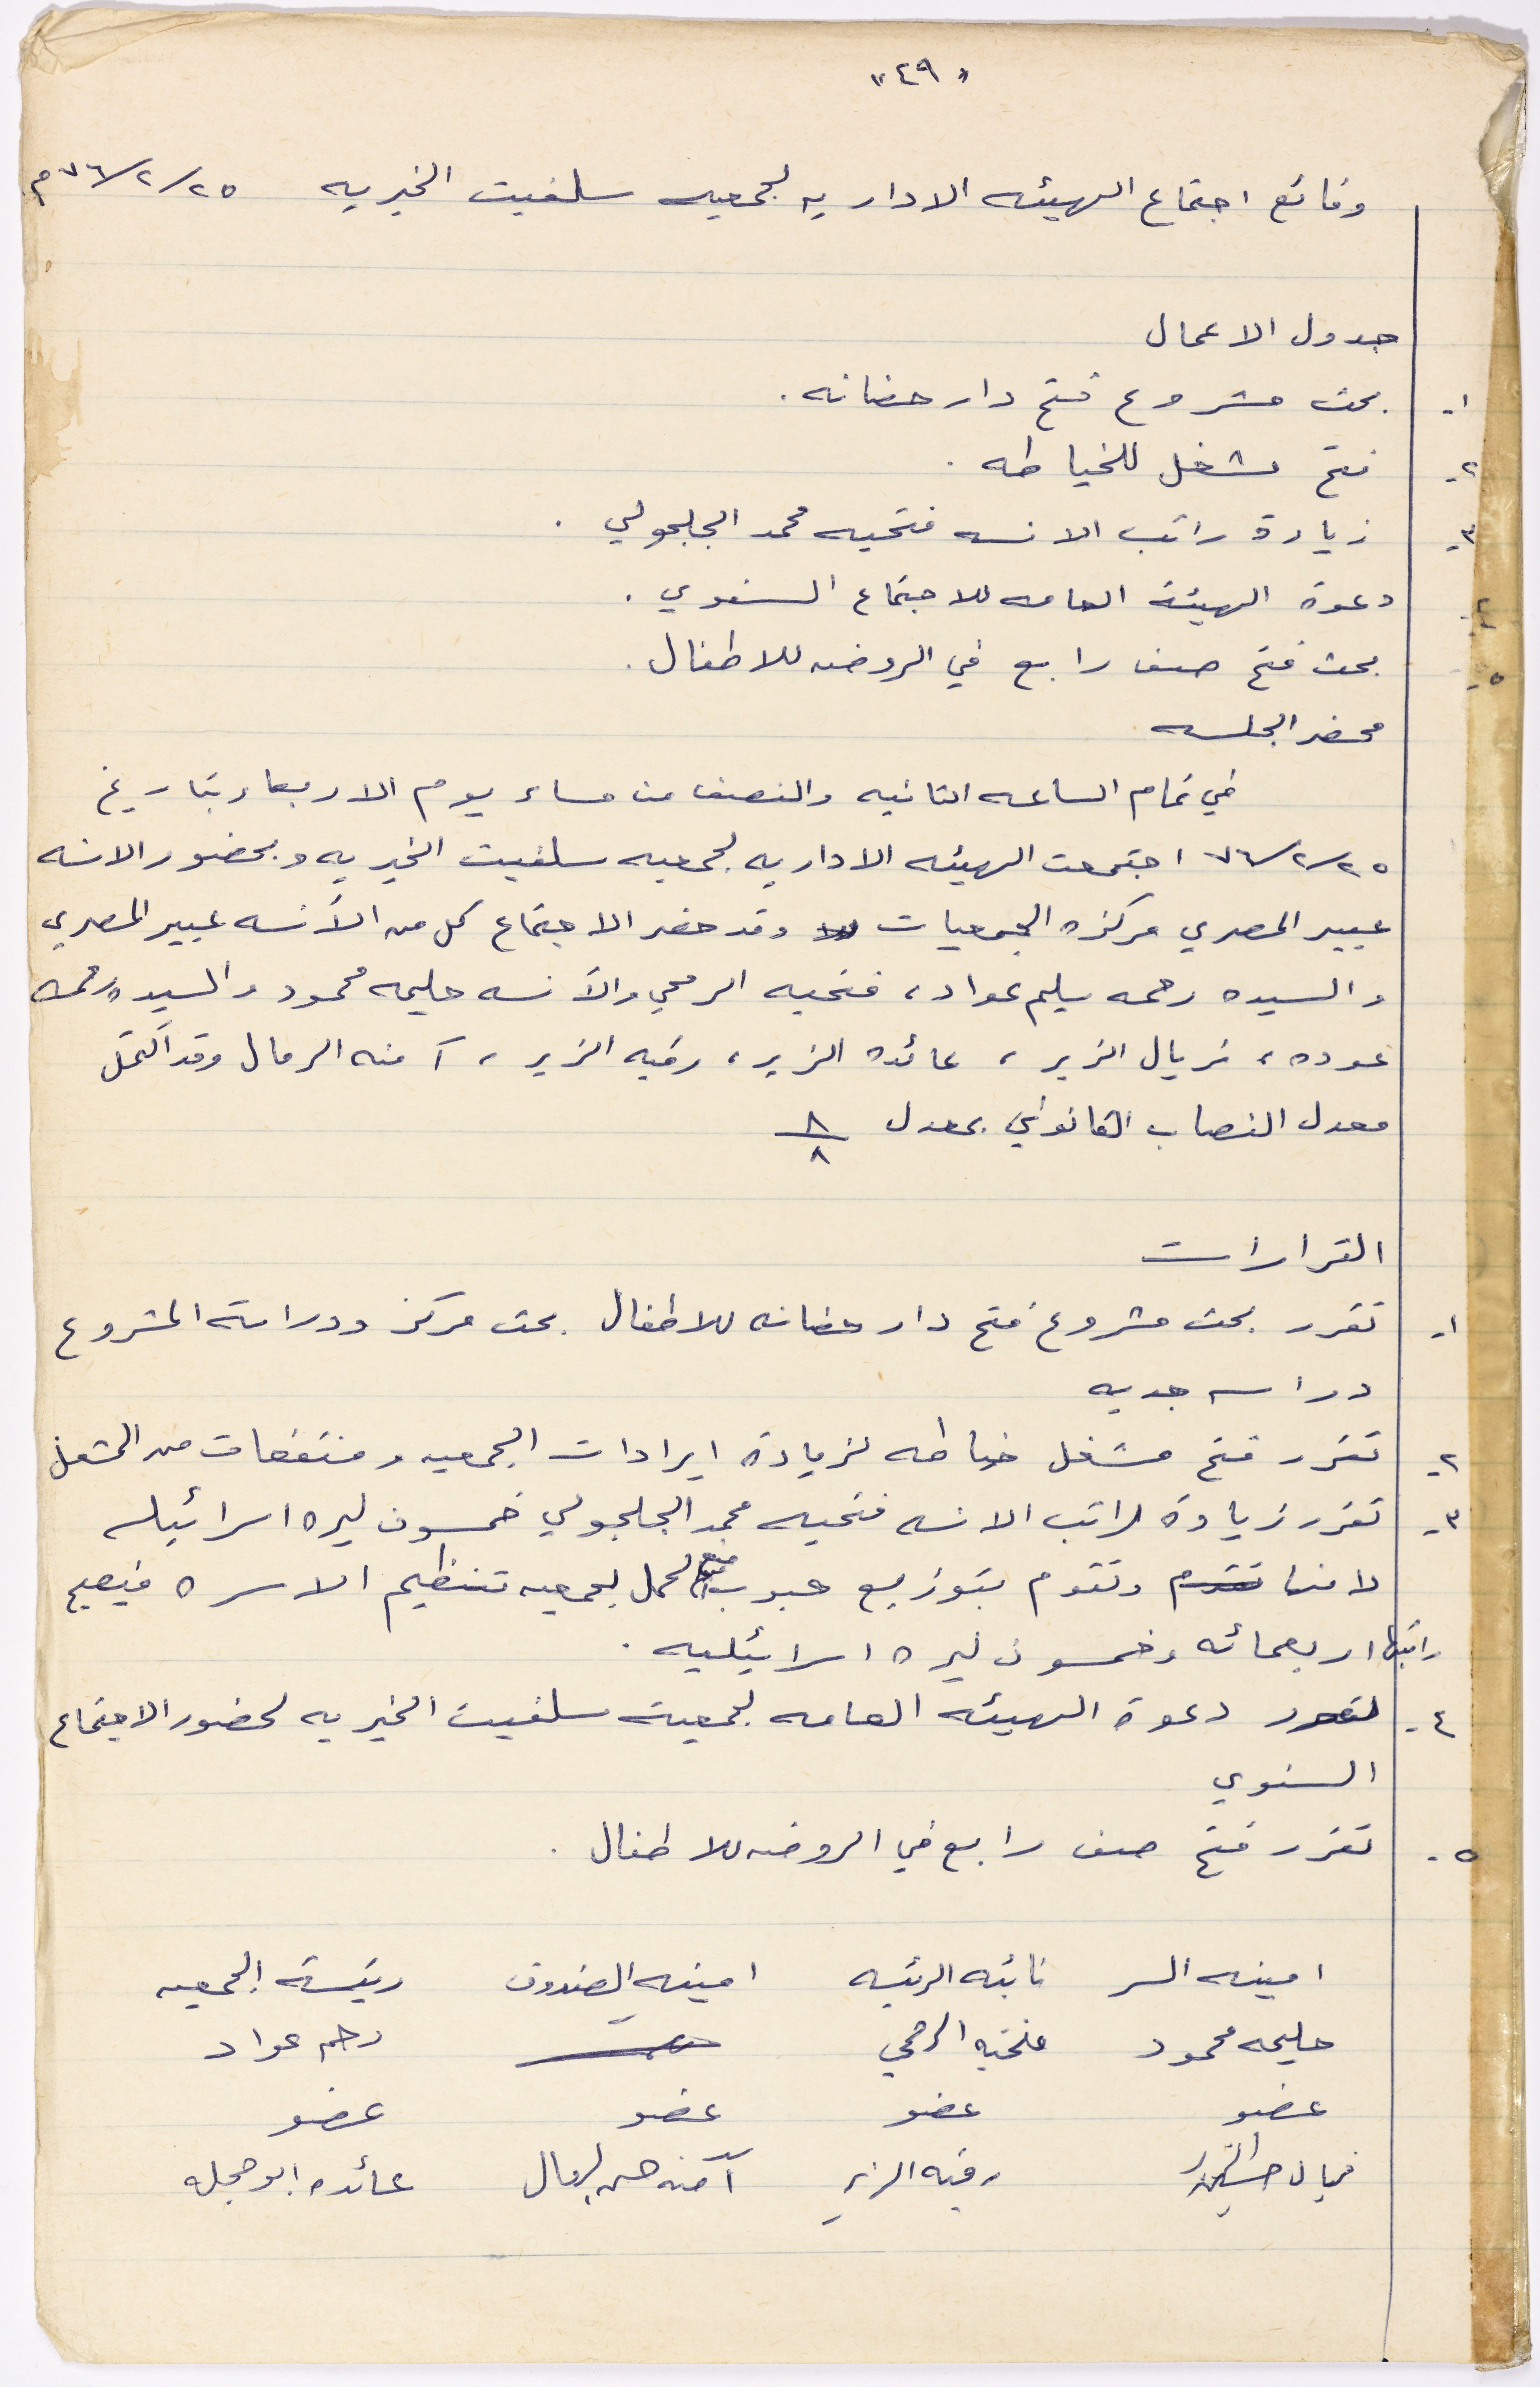 «٤٩»
وقائع اجتماع الهيئه الاداريه لجمعيه سلفيت الخيريه ٧٦/٢/٢٥م
جدول الاعمال
١- بحث مشروع فتح دار حضانه .
٢- فتح مشغل للخياطه .
٣- زيادة راتب الانسه فتحيه محمد الجلجولي .
٤- دعوة الهيئة العامه للاجتماع السنوي .
٥- بحث فتح صف رابع في الروضه للاطفال .
محضر الجلسه
في تمام الساعه الثانيه والنصف من مساء يوم الاربعاء بتاريخ
٧٦/٢/٢٥ اجتمعت الهيئه الاداريه لجمعيه سلفيت الخيريه وبحضور الانسه
عبير المصري مركزه الجمعيات وقد حضر الاجتماع كل من الآنسه عبير المصري
والسيده رحمه سليم عواد ، فتحيه الرمحي والآنسه حليمه محمود والسيده رحمه
عوده ، فريال الزير ، عائده الزير ، رقيه الزير ، آمنه الرمال وقد اكتمل
معدل النصاب القانوني بمعدل ٨/٨
القرارات
١- تقرر بحث مشروع فتح دار حضانه للاطفال بحث مركز ودراسة المشروع
دراسه جديه
٢- تقرر فتح مشغل خياطه لزيادة ايرادات الجمعيه ومنتفعات من المشغل
٣- تقرر زيادة لراتب الانسه فتحيه محمد الجلجولي خمسون ليره اسرائيله
لانها تقوم وتقوم بتوزيع حبوب منع الحمل لجمعيه تنظيم الاسره فيصبح
راتبها اربعمائه وخمسون ليره اسرائيليه .
٤- تقرر دعوة الهيئه العامه لجمعية سلفيت الخيريه لحضور الاجتماع
السنوي
٥- تقرر فتح صف رابع في الروضه للاطفال .
امينه السر نائبه الرئيسه امينه الصندوق رئيسة الجمعيه
حليمه محمود فتحيه الرمحي رحمه عواد
عضو عضو عضو عضو
فريال رقيه الزير آمنه حسن الرمال عائده ابو حجله